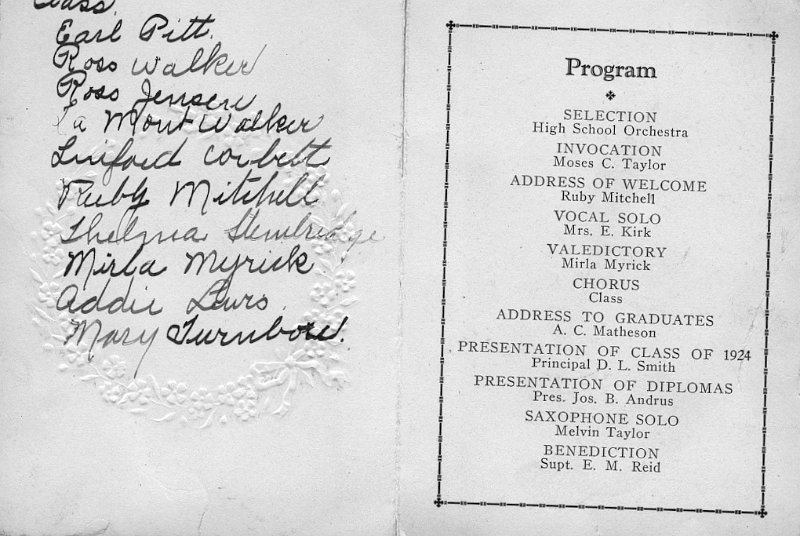 Class.
Earl Pitt.
Ross Walker
Ross Jensen
La Mont Walker
Linford Corbett
Ruby Mitchell
Thelma Stembridge
Mirla Myrick
Addie Laws
Mary Turnbow.
Program
SELECTION
High School Orchestra
INVOCATION
Moses C. Taylor
ADDRESS OF WELCOME
Ruby Mitchell
VOCAL SOLO
Mrs. E. Kirk
VALEDICTORY
Mirla Myrick
CHORUS
Class
ADDRESS TO GRADUATES
A. C. Matheson
PRESENTATION OF CLASS OF 1924
Principal D. L. Smith
PRESENTATION OF DIPLOMAS
Pres. Jos. B. Andrus
SAXOPHONE SOLO
Melvin Taylor
BENEDICTION
Supt. E. M. Reid